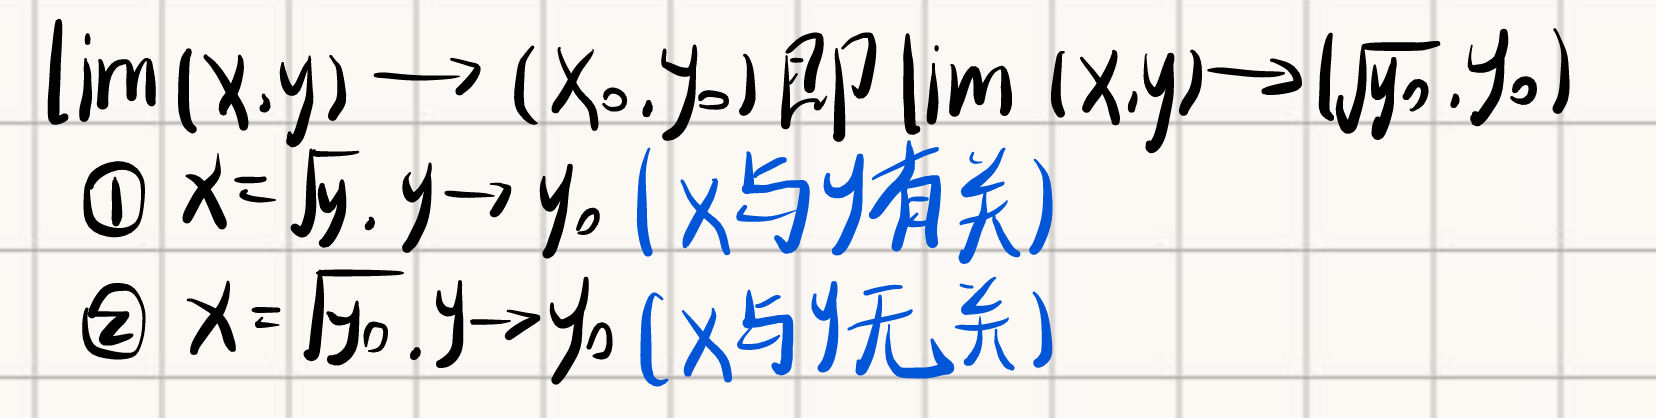 lim (x,y) → (x₀,y₀) 即 lim (x,y) → (√y₀,y₀)
① x=√y, y→y₀ (x与y有关)
② x=√y₀, y→y₀ (x与y无关)